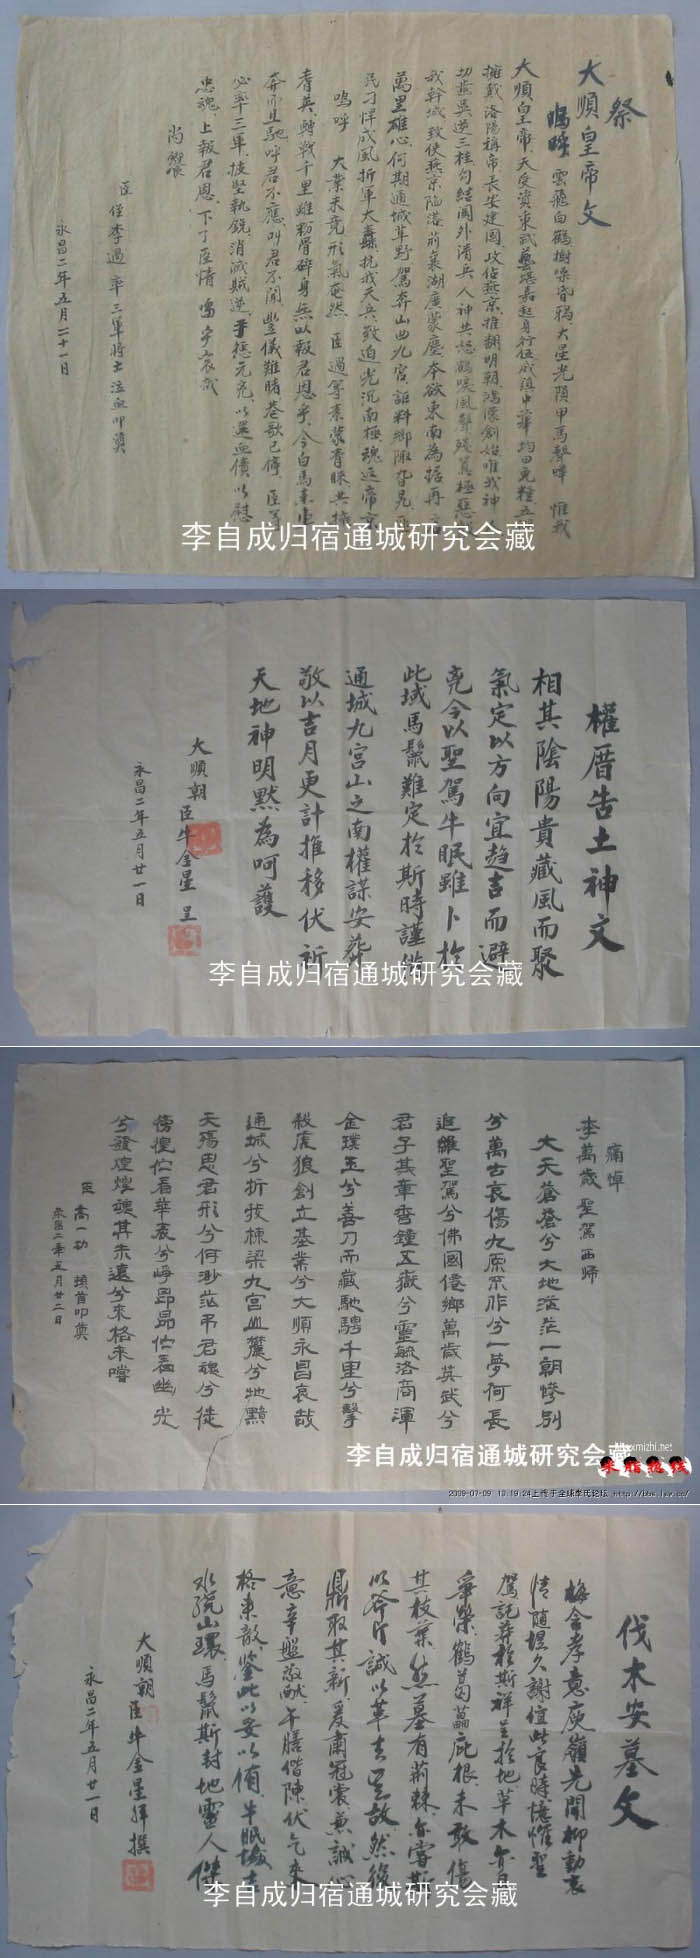 祭
大順皇帝文
嗚呼 雲飛白鶴樹噪昏鴉大星光隕甲馬聲嘩 惟我
大順皇帝天受資東武藝堪嘉起身行伍威鎮中華均田免糧五
擁戴洛陽稱帝長安建國攻佔燕京推翻明朝鴻濛創始唯我神
切齒吳逆三桂勾結關外清兵人神共怒鶴唳風聲殘暴極惡
我幹城致使燕京陷落荊襄湖廣蒙塵本欲東南為據再
萬里雄心何期通城草野駕奔山曲九宮詎料鄉陬
民刁悍成風折軍大纛抗我天兵致迫光沉南極魂返帝京
嗚呼 大業未竟形氣奄然 臣過等素蒙青睞共擁
耆英轉戰千里雖粉骨碎身無以報君恩乎今白馬素車
奔而且馳呼君不應叫君不聞豐儀難睹巷歌已停 臣等
必率三軍披堅執銳消滅賊逆手懲元兇以還血債以慰
忠魂上報君恩下了臣情 嗚乎哀哉
尚饗
臣 侄李過 率三軍將士泣血叩奠
永昌二年五月二十一日
李自成归宿通城研究会藏
權厝告土神文
相其陰陽貴藏風而聚
氣定以方向宜趨吉而避
兇今以聖駕牛眠雖卜於
此域馬鬣難定於斯時謹偕
通城九宮山之南權謀安葬
敬以吉月更計推移伏祈
天地神明默為呵護
大順朝 臣牛金星 呈
永昌二年五月廿一日
李自成归宿通城研究会藏
痛悼
李萬歲聖駕西歸
大天蒼蒼兮大地茫茫一朝慘別
兮萬古哀傷九原不作兮一夢何長
追維聖駕兮佛國僊鄉萬歲英武兮
君子其章秀鐘五嶽兮靈毓洛商渾
金璞玉兮善刀而藏馳騁千里兮擊
殺虎狼創立基業兮大順永昌哀哉
通城兮折我棟梁九宮山麓兮地黯
天殤思君形兮何渺茫弔君魂兮徒
傍徨伫看華表兮崢昂昂伫看幽光
兮發煌煌魂其未遠兮來格來嚐
臣 高一功 頓首叩奠
永昌二年五月廿二日
李自成归宿通城研究会藏
xmizhi.net
米脂热线
2009-07-09 13:19:24上传于全球李氏论坛 http://bbs.lsw.cc/
伐木安墓文
梅含孝意庾嶺先開柳動哀
情隨堤久謝值此良時憶惟聖
駕託葬於斯祥呈於地草木亦有
華榮鶴葛藟庇根未敢傷
其枝葉然墓有荊棘亦當斬
以斧斤誠以革去其故然後
鼎取其新爰肅冠裳兼誠心
意辛盤敬獻午膳偕陳伏乞來
格來歆鑒此以妥以侑牛眠
水繞山環馬鬣斯封地靈人傑
大順朝 臣牛金星拜撰
永昌二年五月廿一日
李自成归宿通城研究会藏